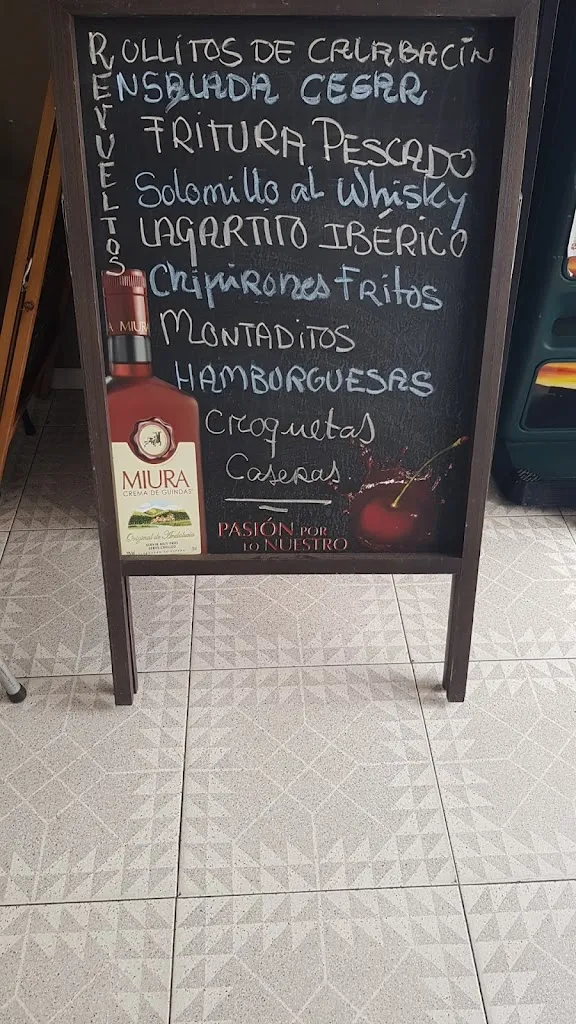 ROLLITOS DE CALABACÍN
ENSALADA CESAR
FRITURA PESCADO
Solomillo al Whisky
LAGARTITO IBÉRICO
Chipirones Fritos
MONTADITOS
HAMBORGUESAS
Croquetas
Caseras
REVUELTOS
A MIURA
MIURA
CREMA DE GUINDAS
Original de Andalucía
PASIÓN POR
LO NUESTRO